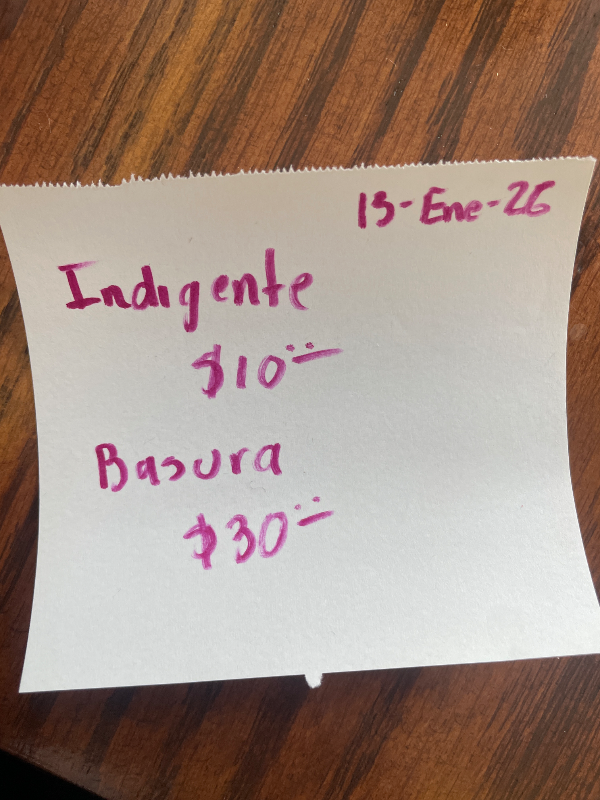 13-Ene-26
Indigente
$10.-
Basura
$30.-